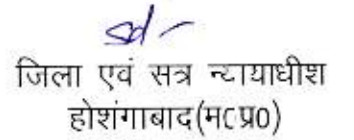 sd/-
जिला एवं सत्र न्यायाधीश
होशंगाबाद(म0प्र0)